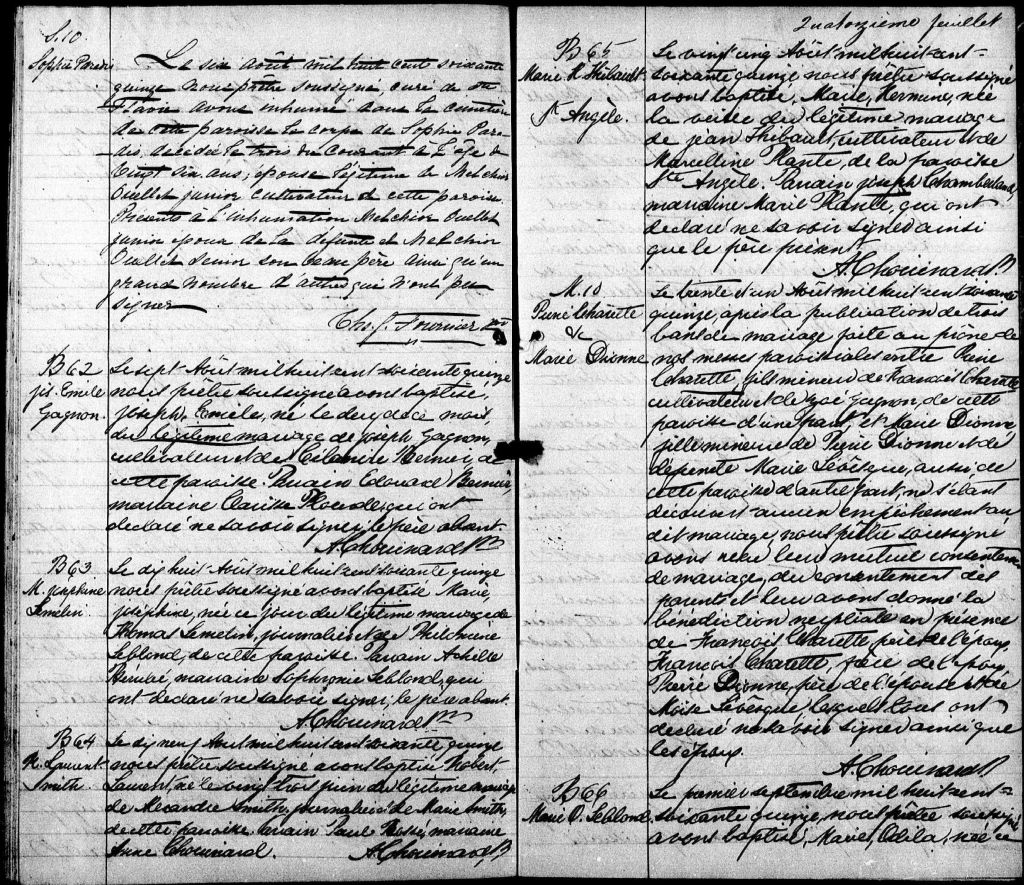 S.10.
Sophie Paradis
Le six août mil huit cent soixante
quinze Nous prêtre soussigné curé de Ste
Flavie avons inhumé dans le cimetière
de cette paroisse le corps de Sophie Para-
dis, décédée le trois du courant à l'âge de
vingt six ans; épouse légitime de Melchior
Ouellet junior cultivateur de cette paroisse
Présents à l'inhumation Melchior Ouellet
junior époux de la défunte et Melchior
Ouellet senior son beau père ainsi qu'un
grand nombre d'autres qui n'ont pu
signer
Ths. J. Fournier
B 62
js. Emile
Gagnon.
Le sept Août mil huit cent soixante quinze
nous prêtre soussigné avons baptisé,
Joseph, Emile, né le de ce mois
du légitime mariage de Joseph Gagnon,
cultivateur et de Bernier, de
cette paroisse. Parrain Edouard Bernier,
marraine qui ont
déclaré ne savoir signer, le père absent.
A. Chouinard Ptr
B 63
M. josephine
Lemelin
Le dix huit Août mil huit cent soixante quinze
nous prêtre soussigné avons baptisé Marie,
joséphine, née ce jour du légitime mariage de
Thomas Lemelin, journalier et de Philomène
Leblond, de cette paroisse. Parrain Achille
marraine Sophronie Leblond, qui
ont déclaré ne savoir signer, le père absent.
A. Chouinard Ptr
B 64
R. Laurent
Smith.
Le dix neuf Août mil huit cent soixante quinze
nous prêtre soussigné avons baptisé Robert,
Laurent, né le vingt trois juin du légitime mariage
de Alexandre Smith, journalier et de Marie Smith,
de cette paroisse. Parrain Paul Rossé, marraine
Anne Chouinard. A. Chouinard, P
Quatorzième feuillet
B 65
Marie H. Thibault
St Angèle.
Le vingt cinq Août mil huit cent-
soixante quinze nous prêtre soussigné
avons baptisé, Marie, Hermine, née
la veille du légitime mariage
de jean Thibault, cultivateur et de
Marcelline Plante, de la paroisse
Ste Angèle. Parrain joseph Chamberland,
marraine Marie Plante, qui ont
déclaré ne savoir signer ainsi
que le père présent.
A. Chouinard P
M. 10
Pierre Charette
&
Marie Dionne
Le trente et un Août mil huit cent soixante
quinze, après la publication de trois
bans de mariage faite au prône de
nos messes paroissiales entre Pierre
Charette, fils mineur de François Charette
cultivateur et de Zoé Gagnon, de cette
paroisse d'une part, et Marie Dionne
fille mineure de Pierre Dionne et de
défunte Marie Lévesque, aussi de
cette paroisse d'autre part, ne s'étant
découvert aucun empêchement au
dit mariage, nous prêtre soussigné
avons reçu leur mutuel consentement
de mariage, du consentement des
parents et leur avons donné la
bénédiction nuptiale en présence
de François Charette, père de l'époux,
François Charette, frère de l'époux,
Pierre Dionne, père de l'épouse et de
Moïse Lévesque lesquels tous ont
déclaré ne savoir signer ainsi que
les époux.
A. Chouinard P
B 66
Marie O. Leblond.
Le premier septembre mil huit cent-
soixante quinze, nous prêtre soussigné
avons baptisé, Marie, Odila, née ce